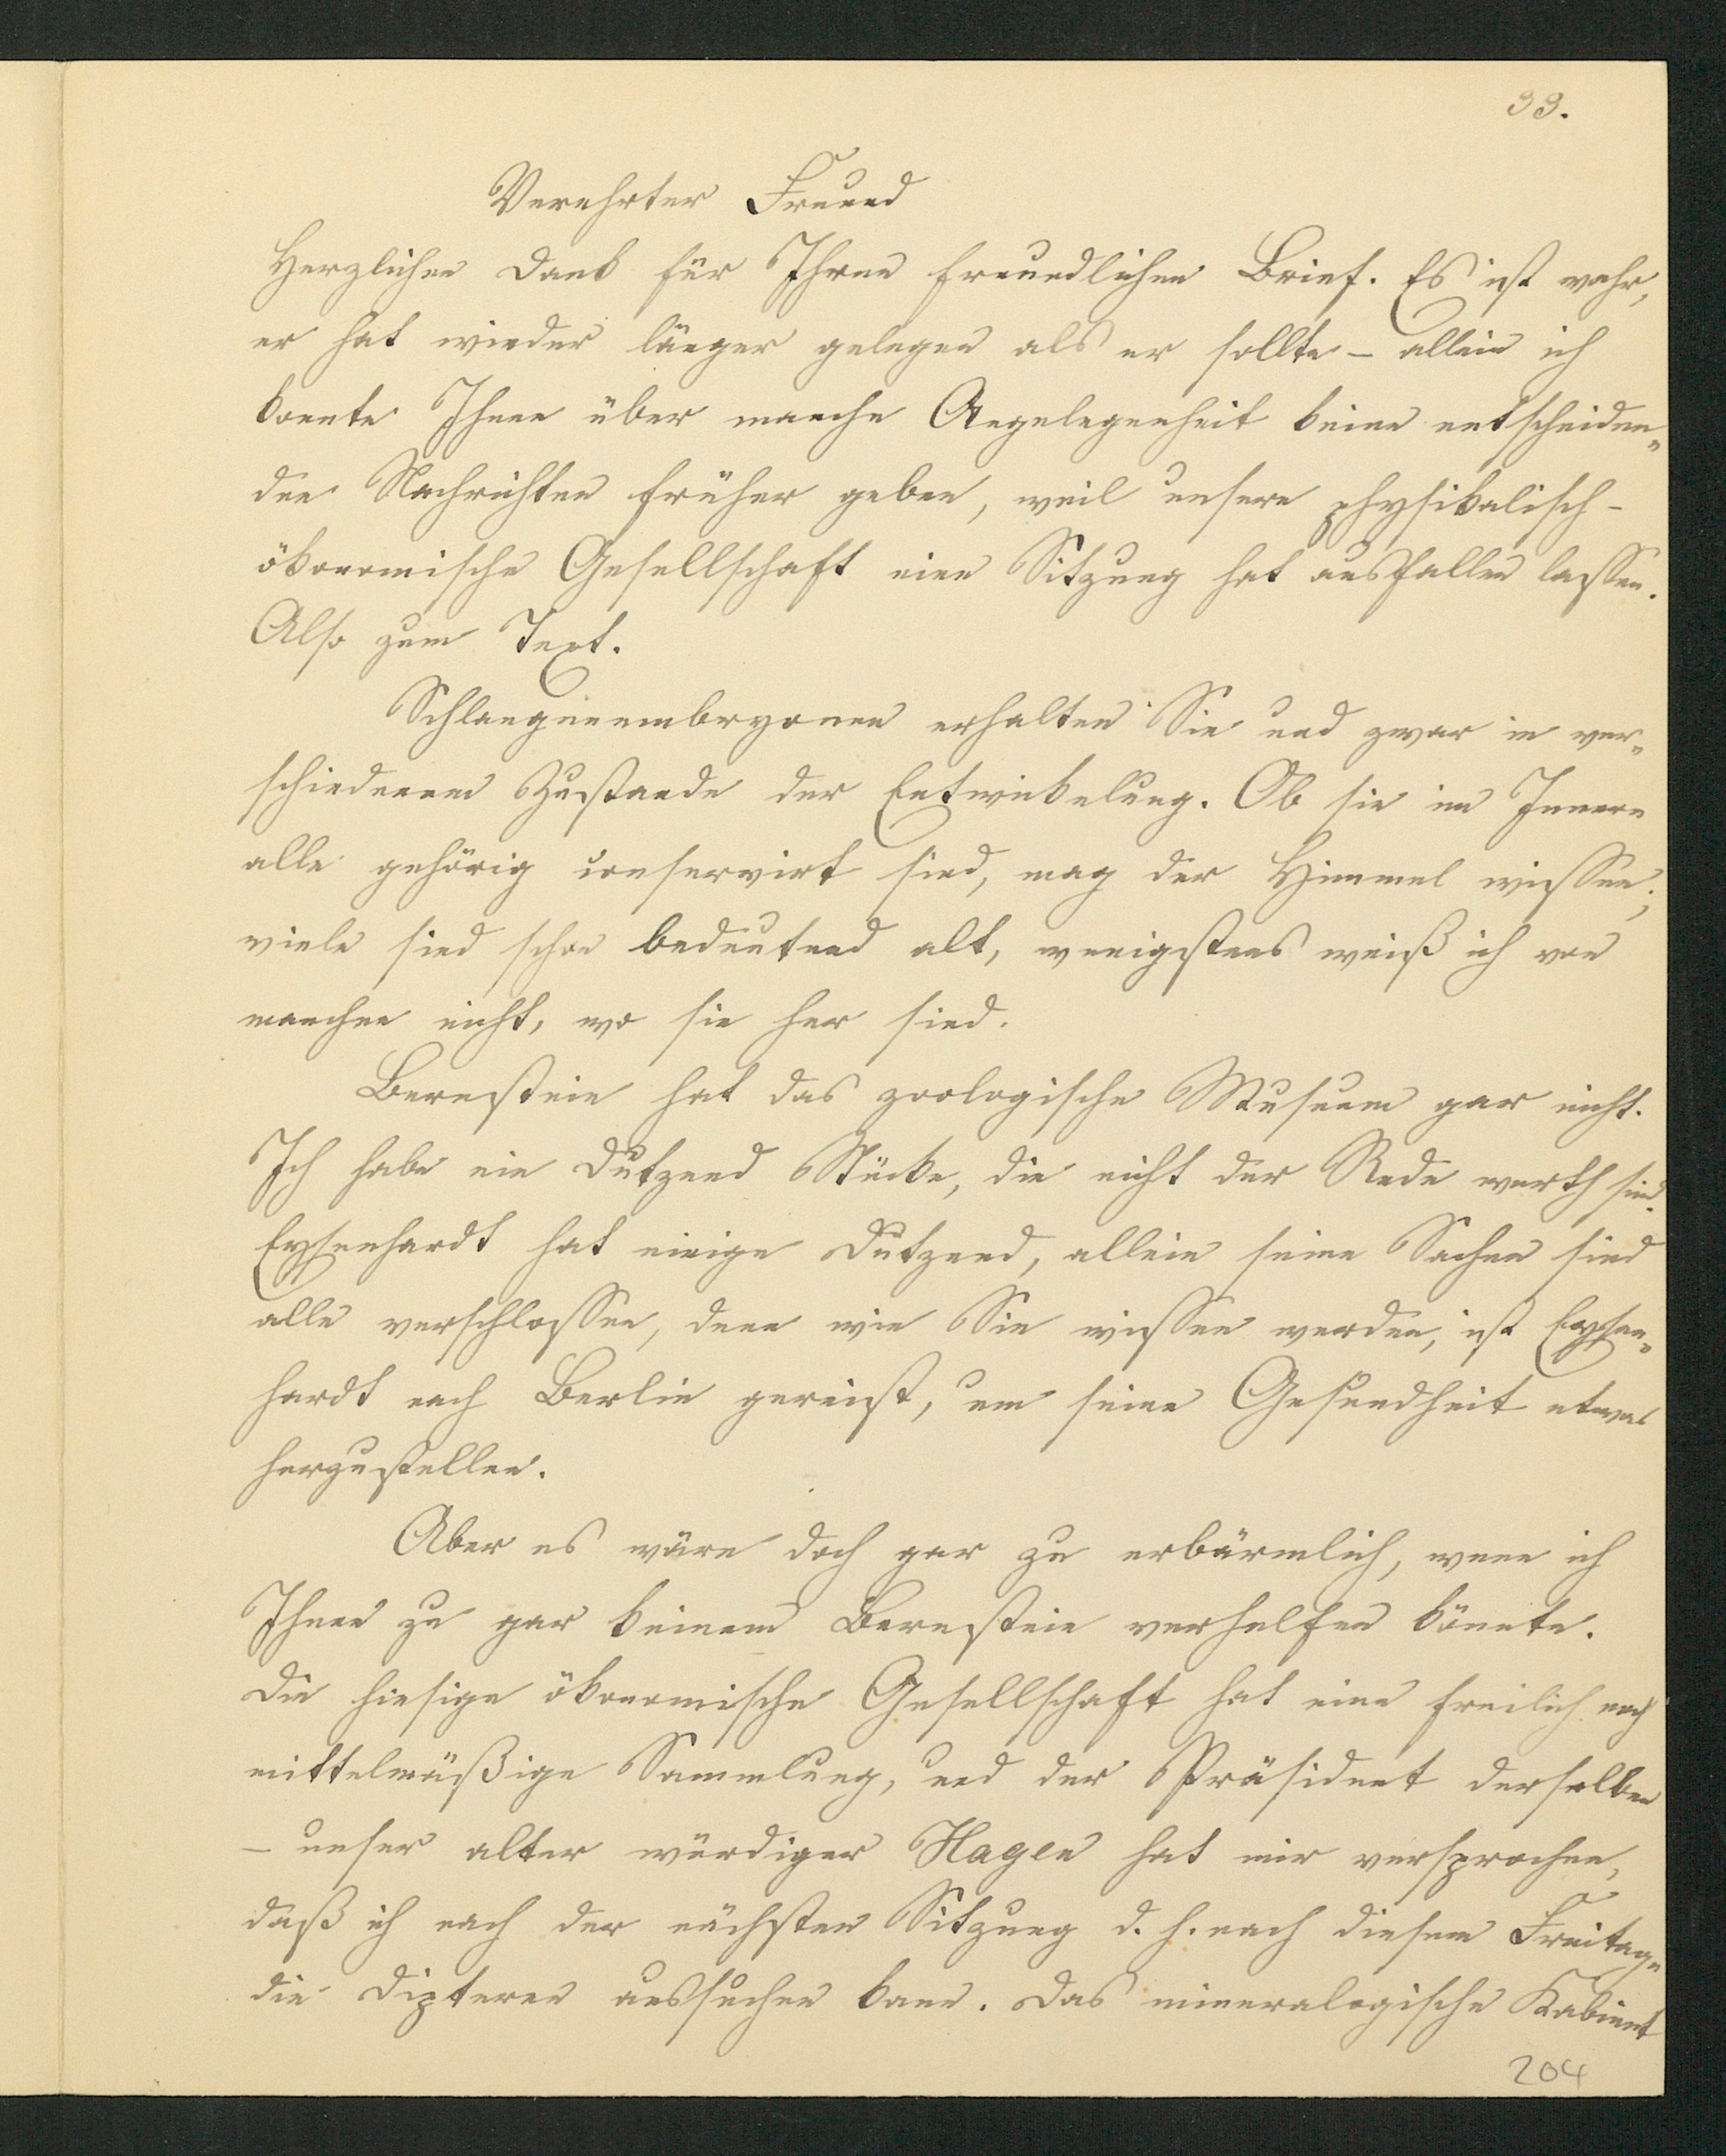 33.
Verehrter Freund
Herzlichen Dank für Ihren freundlichen Brief. Es ist wahr,
er hat wieder länger gelegen als er sollte – allein ich
konnte Ihnen über manche Angelegenheit keine entscheiden-
den Nachrichten früher geben, weil unsere physikalisch-
ökonomische Gesellschaft eine Sitzung hat ausfallen lassen.
Also zum Text.
Schlangenembryonen erhalten Sie und zwar in ver-
schiedenem Zustande der Entwickelung. Ob sie im Innern
alle gehörig conservirt sind, mag der Himmel wissen;
viele sind schon bedeutend alt, wenigstens weiß ich von
manchen nicht, wo sie her sind.
Bernstein hat das zoologische Museum gar nicht.
Ich habe ein Dutzend Stücke, die nicht der Rede werth sind.
Eysenhardt hat einige Dutzend, allein seine Sachen sind
alle verschlossen, denn wie Sie wissen werden, ist Eysen-
hardt nach Berlin gereist, um seine Gesundheit etwas
herzustellen.
Aber es wäre doch gar zu erbärmlich, wenn ich
Ihnen zu gar keinem Bernstein verhelfen könnte.
Die hiesige ökonomische Gesellschaft hat eine freilich noch
mittelmäßige Sammlung, und der Präsident derselben
– unser alter würdiger Hagen hat mir versprochen,
daß ich nach der nächsten Sitzung d. h. nach diesem Freitage
die Dipteren aussuchen kann. Das mineralogische Kabinet
204